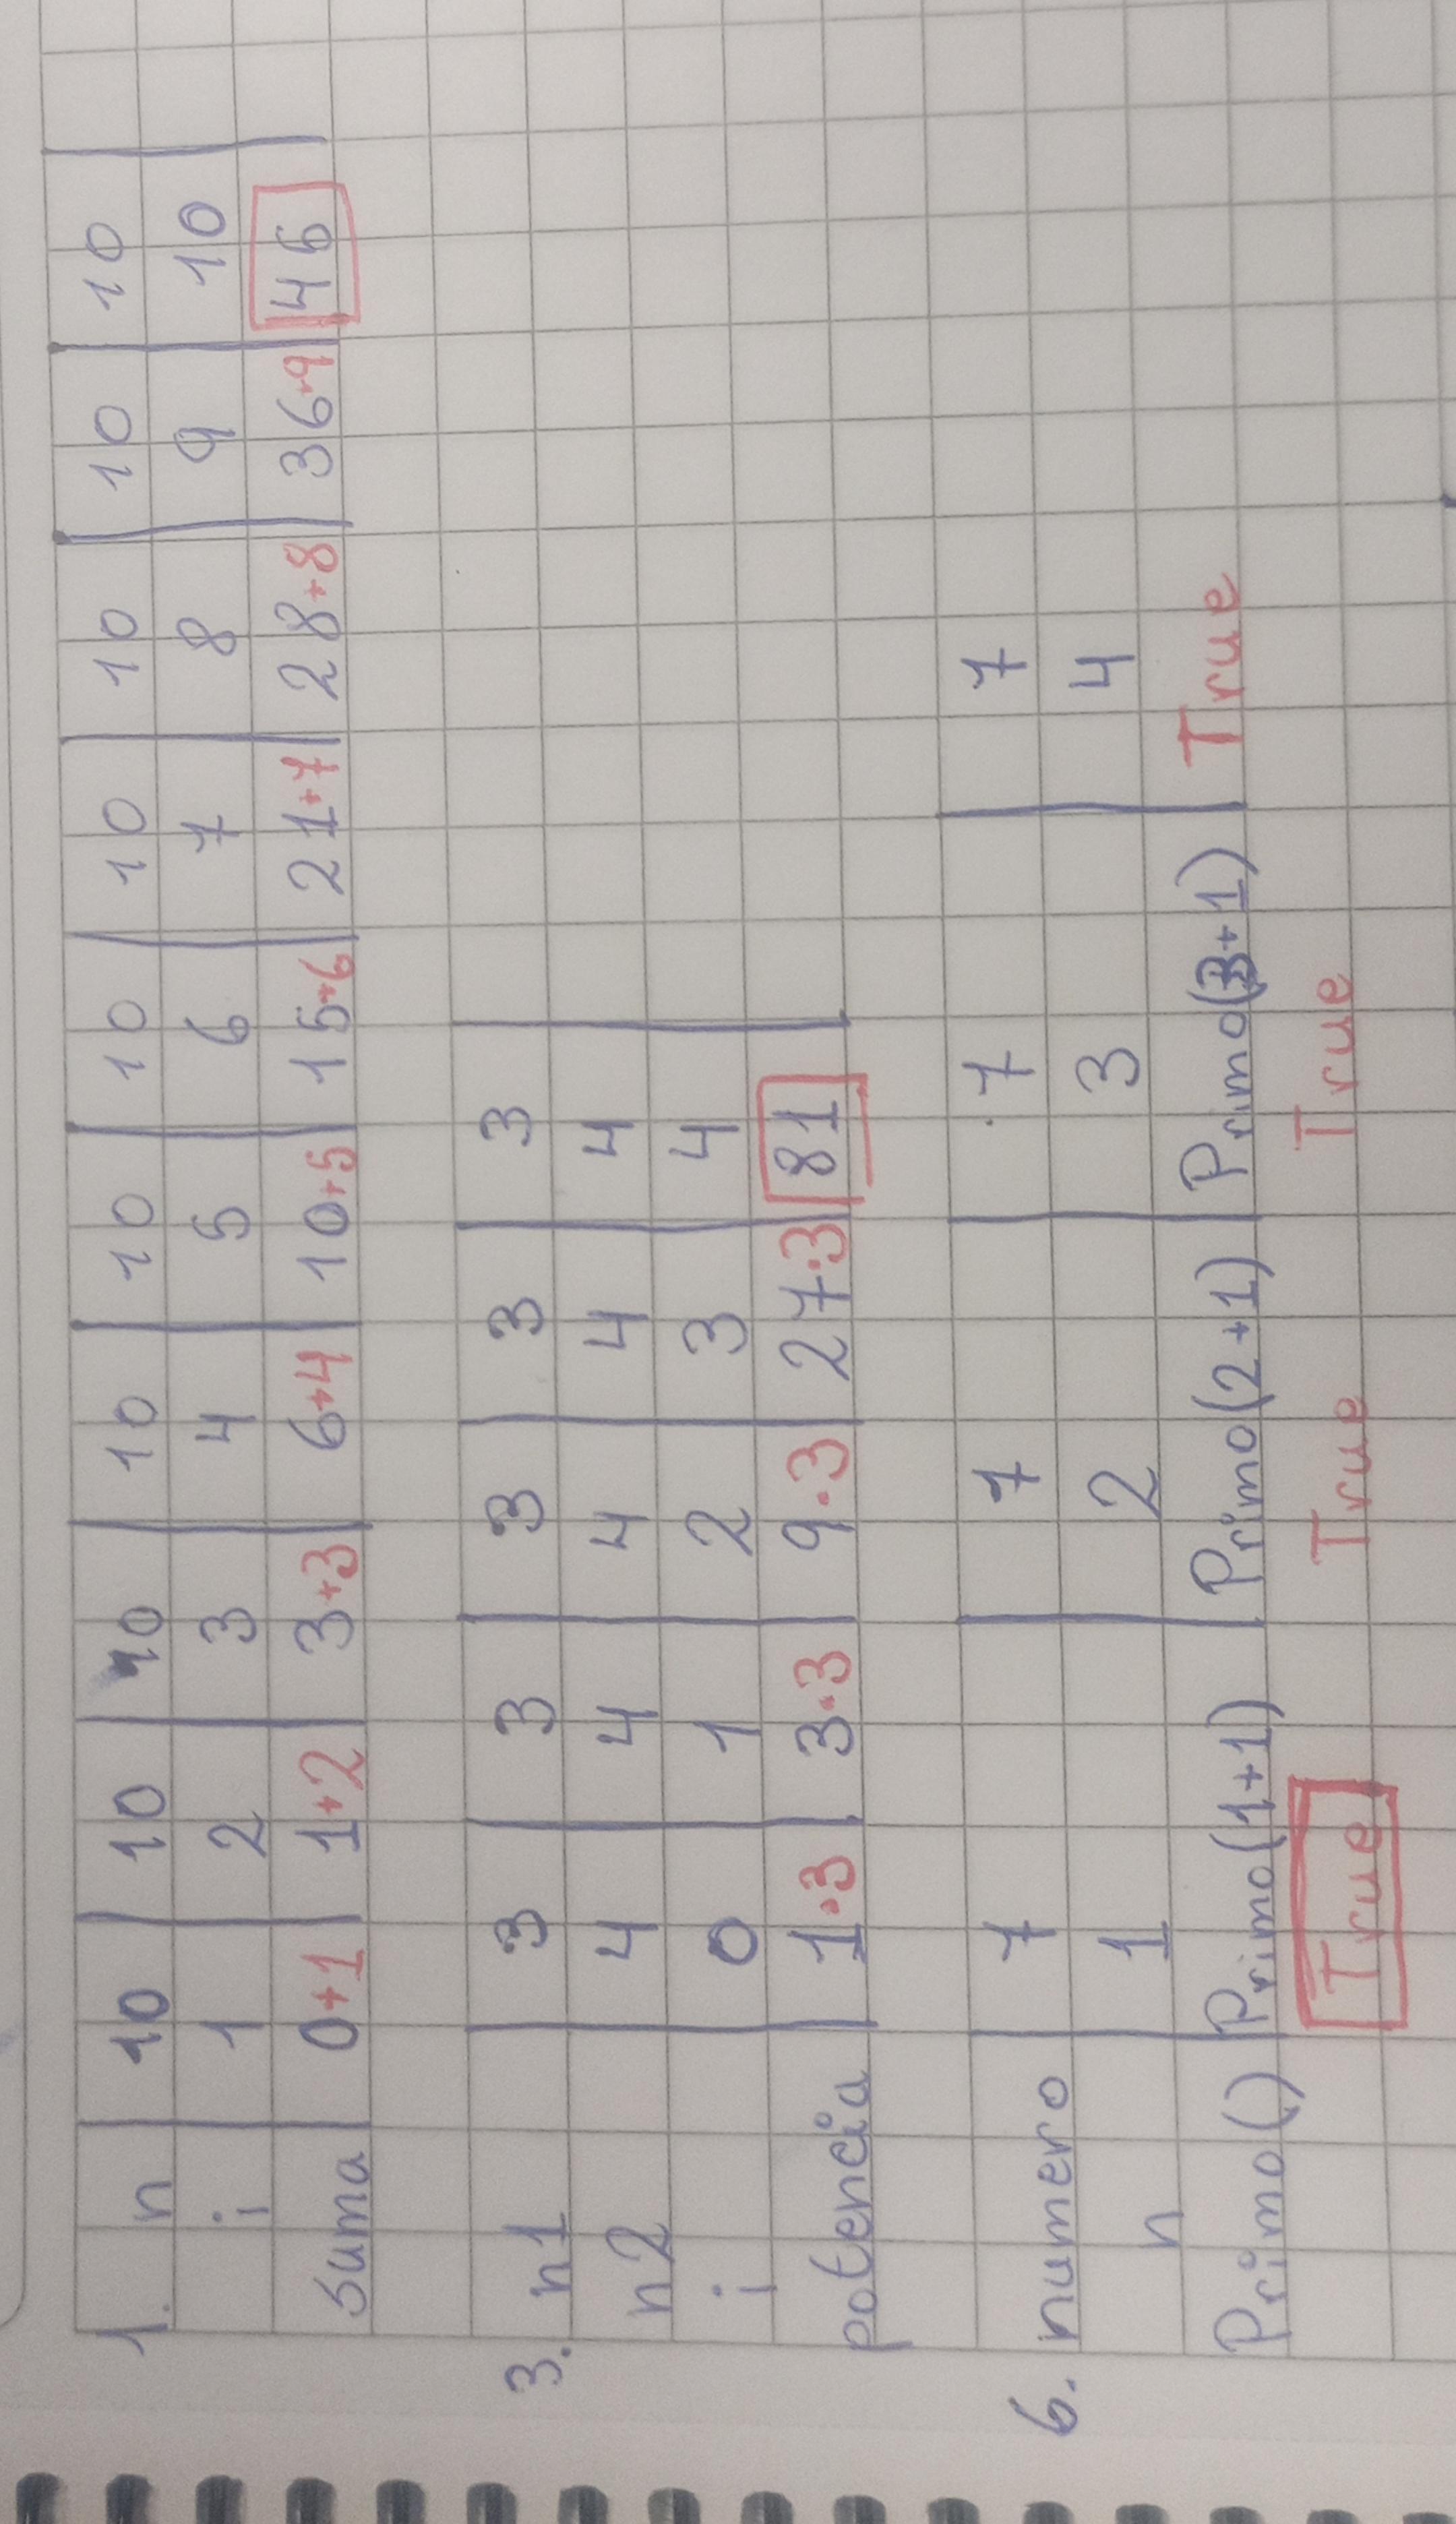 1. n 10 10 10 10 10 10 10 10 10 10
i 1 2 3 4 5 6 7 8 9 10
suma 0+1 1+2 3+3 6+4 10+5 15+6 21+7 28+8 36+9 45
3. n1 3 3 3 3 3
n2 4 4 4 4 4
i 0 1 2 3 4
potencia 1·3 3·3 9·3 27·3 81
6. numero 7 7 7 7
n 1 2 3 4
Primo() Primo(1+1) Primo(2+1) Primo(3+1) True
True True True